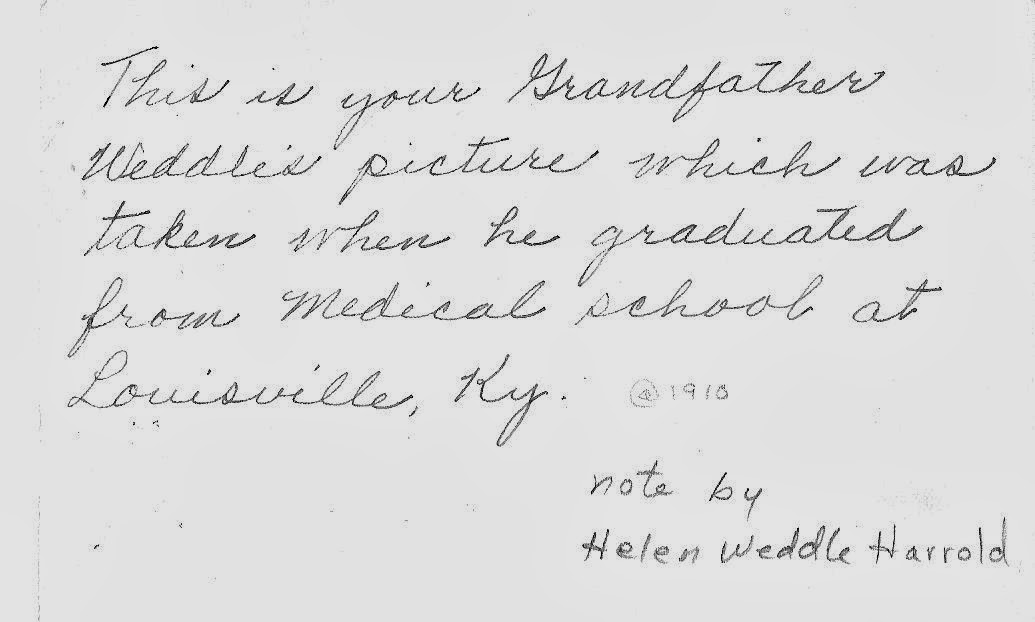 This is your Grandfather
Weddle's picture which was
taken when he graduated
from Medical school at
Louisville, Ky. @1910
note by
Helen Weddle Harrold